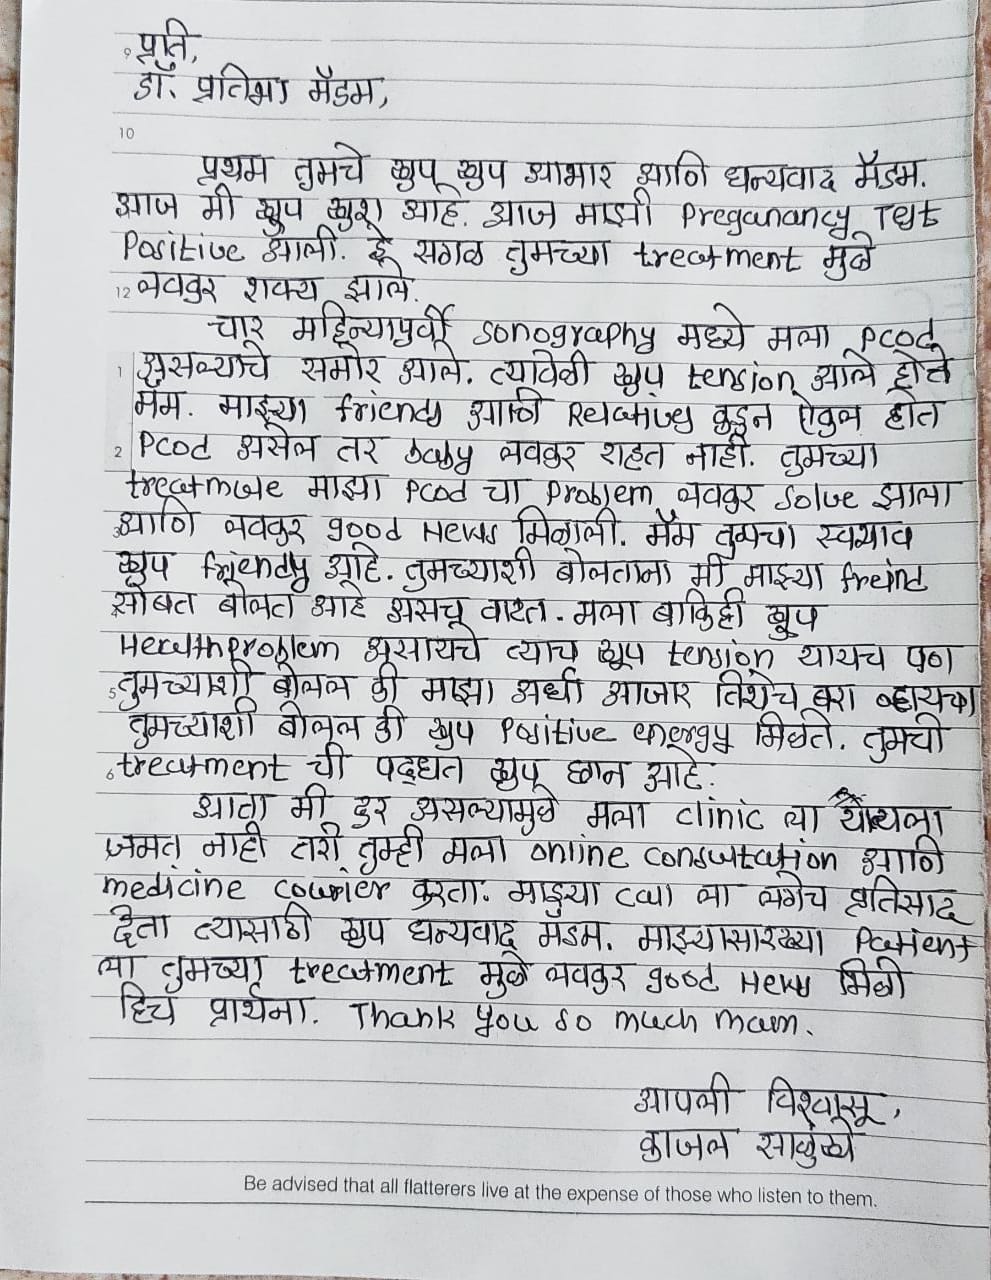 9 प्रति,
डॉ. प्रतिभा मॅडम,
10
प्रथम तुमचे खुप खुप आभार आणि धन्यवाद मॅडम.
आज मी खुप खुश आहे. आज माझी Preganancy Test
Positive आली. हे सगळ तुमच्या treatment मुळे
12 लवकर शक्य झाले.
चार महिन्यापुर्वी sonography मध्ये मला pcod
1 असल्याचे समोर आले. त्यावेळी खुप tension आले होते
मॅम. माझ्या friends आणि Relatives कडुन ऐकुल होत
2 Pcod असेल तर baby लवकर राहत नाही. तुमच्या
treatmule माझा pcod चा problem लवकर solve झाला
आणि लवकर good News मिळाली. मॅम तुमचा स्वभाव
खुप friendly आहे. तुमच्याशी बोलताना मी माझ्या freind
सोबत बोलत आहे असचू वाटत. मला बाकिही खुप
Healthproblem असायचे त्याच खुप tension यायच पण
5 तुमच्याशी बोलल की माझा अर्धा आजार तिथेच बरा व्हायचा
तुमच्याशी बोलल की खुप Positive energy मिळते. तुमची
6 treatment ची पद्धत खुप छान आहे.
आता मी दुर असल्यामुळे मला clinic ला यायला
जमत नाही तरी तुम्ही मला online consultation आणि
medicine courier करता. माझ्या call ला लगेच प्रतिसाद
देता त्यासाठी खुप धन्यवाद मॅडम. माझ्यासारख्या Patient
ला तुमच्या treatment मुळे लवकर good News मिळो
हिच प्रार्थना. Thank you so much mam.
आपली विश्वासू,
काजल साळुंखे
Be advised that all flatterers live at the expense of those who listen to them.